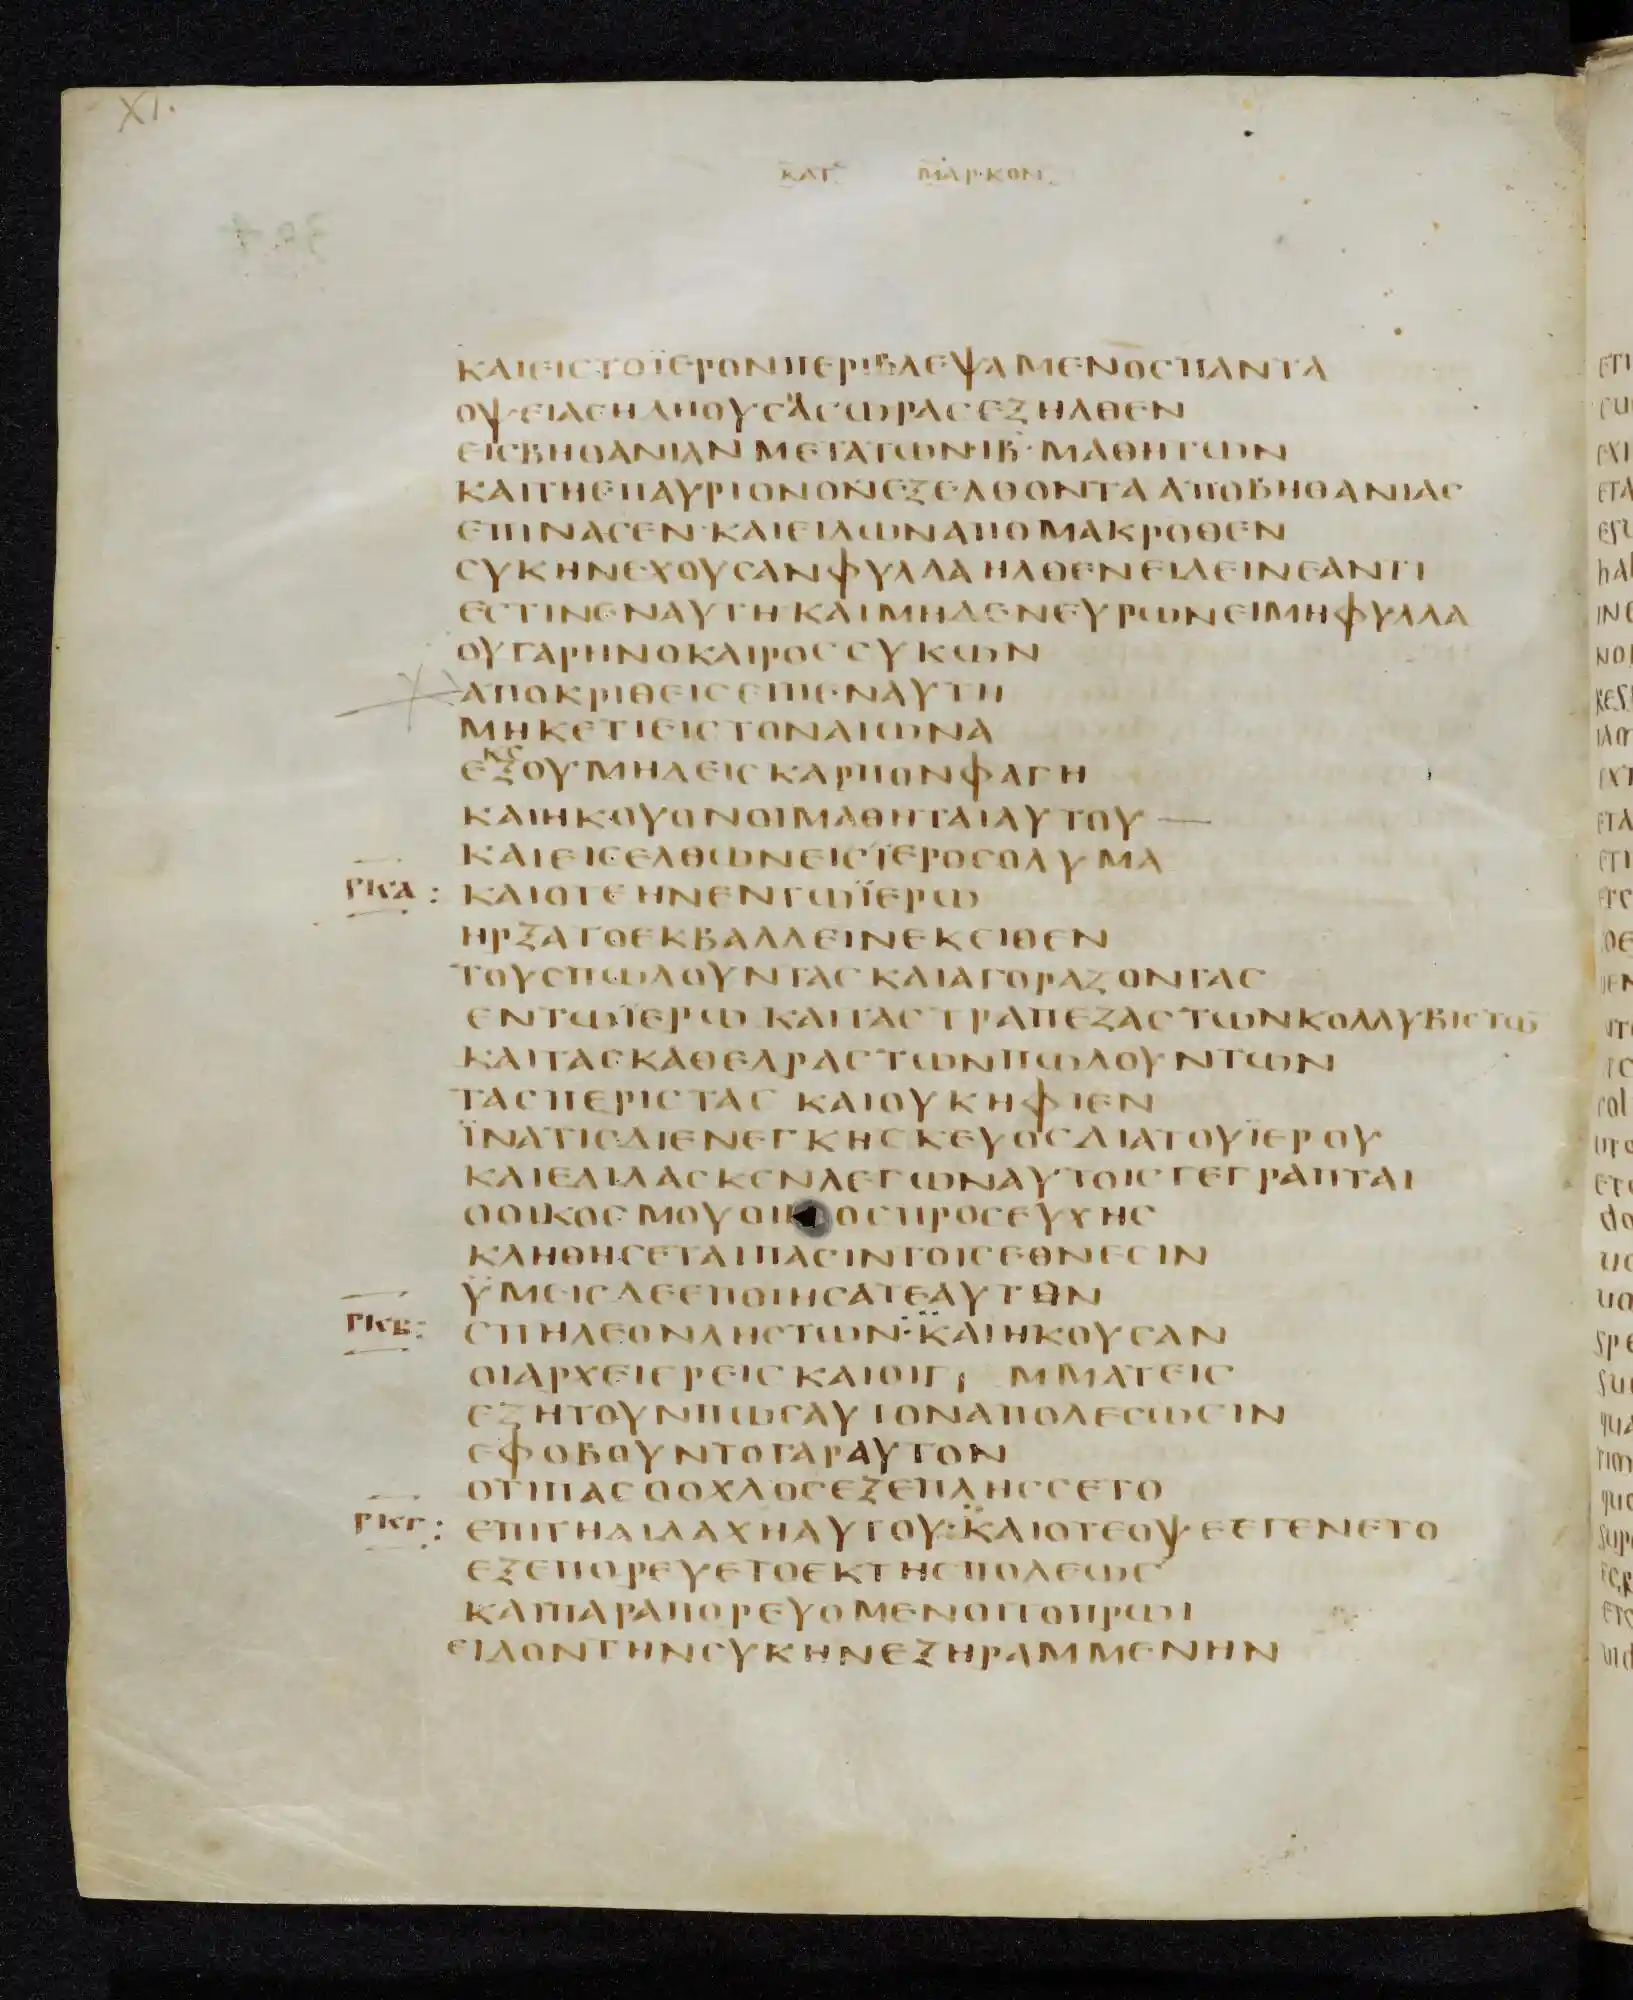 XI.
ΚΑΤ ΜΑΡΚΟΝ
ΚΑΙΕΙCΤΟΪΕΡΟΝΠΕΡΙΒΛΕΨΑΜΕΝΟCΠΑΝΤΑ
ΟΨΕΙΔΕΗΔΗΟΥCΑCΩΡΑCΕΞΗΛΘΕΝ
ΕΙCΒΗΘΑΝΙΑΝΜΕΤΑΤΩΝ·ΙΒ·ΜΑΘΗΤΩΝ
ΚΑΙΤΗΕΠΑΥΡΙΟΝΟΝΕΞΕΛΘΟΝΤΑΑΠΟΒΗΘΑΝΙΑC
ΕΠΙΝΑCΕΝ·ΚΑΙΕΙΔΩΝΑΠΟΜΑΚΡΟΘΕΝ
CΥΚΗΝΕΧΟΥCΑΝΦΥΛΛΑΗΛΘΕΝΕΙΔΕΙΝΕΑΝΤΙ
ΕCΤΙΝΕΝΑΥΤΗ·ΚΑΙΜΗΔΕΝΕΥΡΩΝΕΙΜΗΦΥΛΛΑ
ΟΥΓΑΡΗΝΟΚΑΙΡΟCCΥΚΩΝ
ΑΠΟΚΡΙΘΕΙCΕΙΠΕΝΑΥΤΗ
ΜΗΚΕΤΙΕΙCΤΟΝΑΙΩΝΑ
ΕΞΟΥΜΗΔΕΙCΚΑΡΠΟΝΦΑΓΗ
ΚΑΙΗΚΟΥΟΝΟΙΜΑΘΗΤΑΙΑΥΤΟΥ
ΚΑΙΕΙCΕΛΘΩΝΕΙCΪΕΡΟCΟΛΥΜΑ
ΡΚΑ: ΚΑΙΟΤΕΗΝΕΝΤΩΪΕΡΩ
ΗΡΞΑΤΟΕΚΒΑΛΛΕΙΝΕΚΕΙΘΕΝ
ΤΟΥCΠΩΛΟΥΝΤΑCΚΑΙΑΓΟΡΑΖΟΝΤΑC
ΕΝΤΩΪΕΡΩ ΚΑΙΤΑCΤΡΑΠΕΖΑCΤΩΝΚΟΛΛΥΒΙCΤΩ̅
ΚΑΙΤΑCΚΑΘΕΔΡΑCΤΩΝΠΩΛΟΥΝΤΩΝ
ΤΑCΠΕΡΙCΤΑC ΚΑΙΟΥΚΗΦΙΕΝ
ΪΝΑΤΙCΔΙΕΝΕΓΚΗCΚΕΥΟCΔΙΑΤΟΥΪΕΡΟΥ
ΚΑΙΕΔΙΔΑCΚΕΝΛΕΓΩΝΑΥΤΟΙCΓΕΓΡΑΠΤΑΙ
ΟΟΙΚΟCΜΟΥΟΙΚΟCΠΡΟCΕΥΧΗC
ΚΛΗΘΗCΕΤΑΙΠΑCΙΝΤΟΙCΕΘΝΕCΙΝ
ΫΜΕΙCΔΕΕΠΟΙΗCΑΤΕΑΥΤΩΝ
ΡΚΒ: CΠΗΛΕΟΝΛΗCΤΩΝ·ΚΑΙΗΚΟΥCΑΝ
ΟΙΑΡΧΕΙΕΡΕΙCΚΑΙΟΙΓΡ ΜΜΑΤΕΙC
ΕΖΗΤΟΥΝΠΩCΑΥΤΟΝΑΠΟΛΕCΩCΙΝ
ΕΦΟΒΟΥΝΤΟΓΑΡΑΥΤΟΝ
ΟΤΙΠΑCΟΟΧΛΟCΕΞΕΠΛΗCCΕΤΟ
ΡΚΓ: ΕΠΙΤΗΔΙΔΑΧΗΑΥΤΟΥ:ΚΑΙΟΤΕΟΨΕΕΓΕΝΕΤΟ
ΕΞΕΠΟΡΕΥΕΤΟΕΚΤΗCΠΟΛΕΩC
ΚΑΙΠΑΡΑΠΟΡΕΥΟΜΕΝΟΙΤΟΠΡΩΙ
ΕΙΔΟΝΤΗΝCΥΚΗΝΕΞΗΡΑΜΜΕΝΗΝ